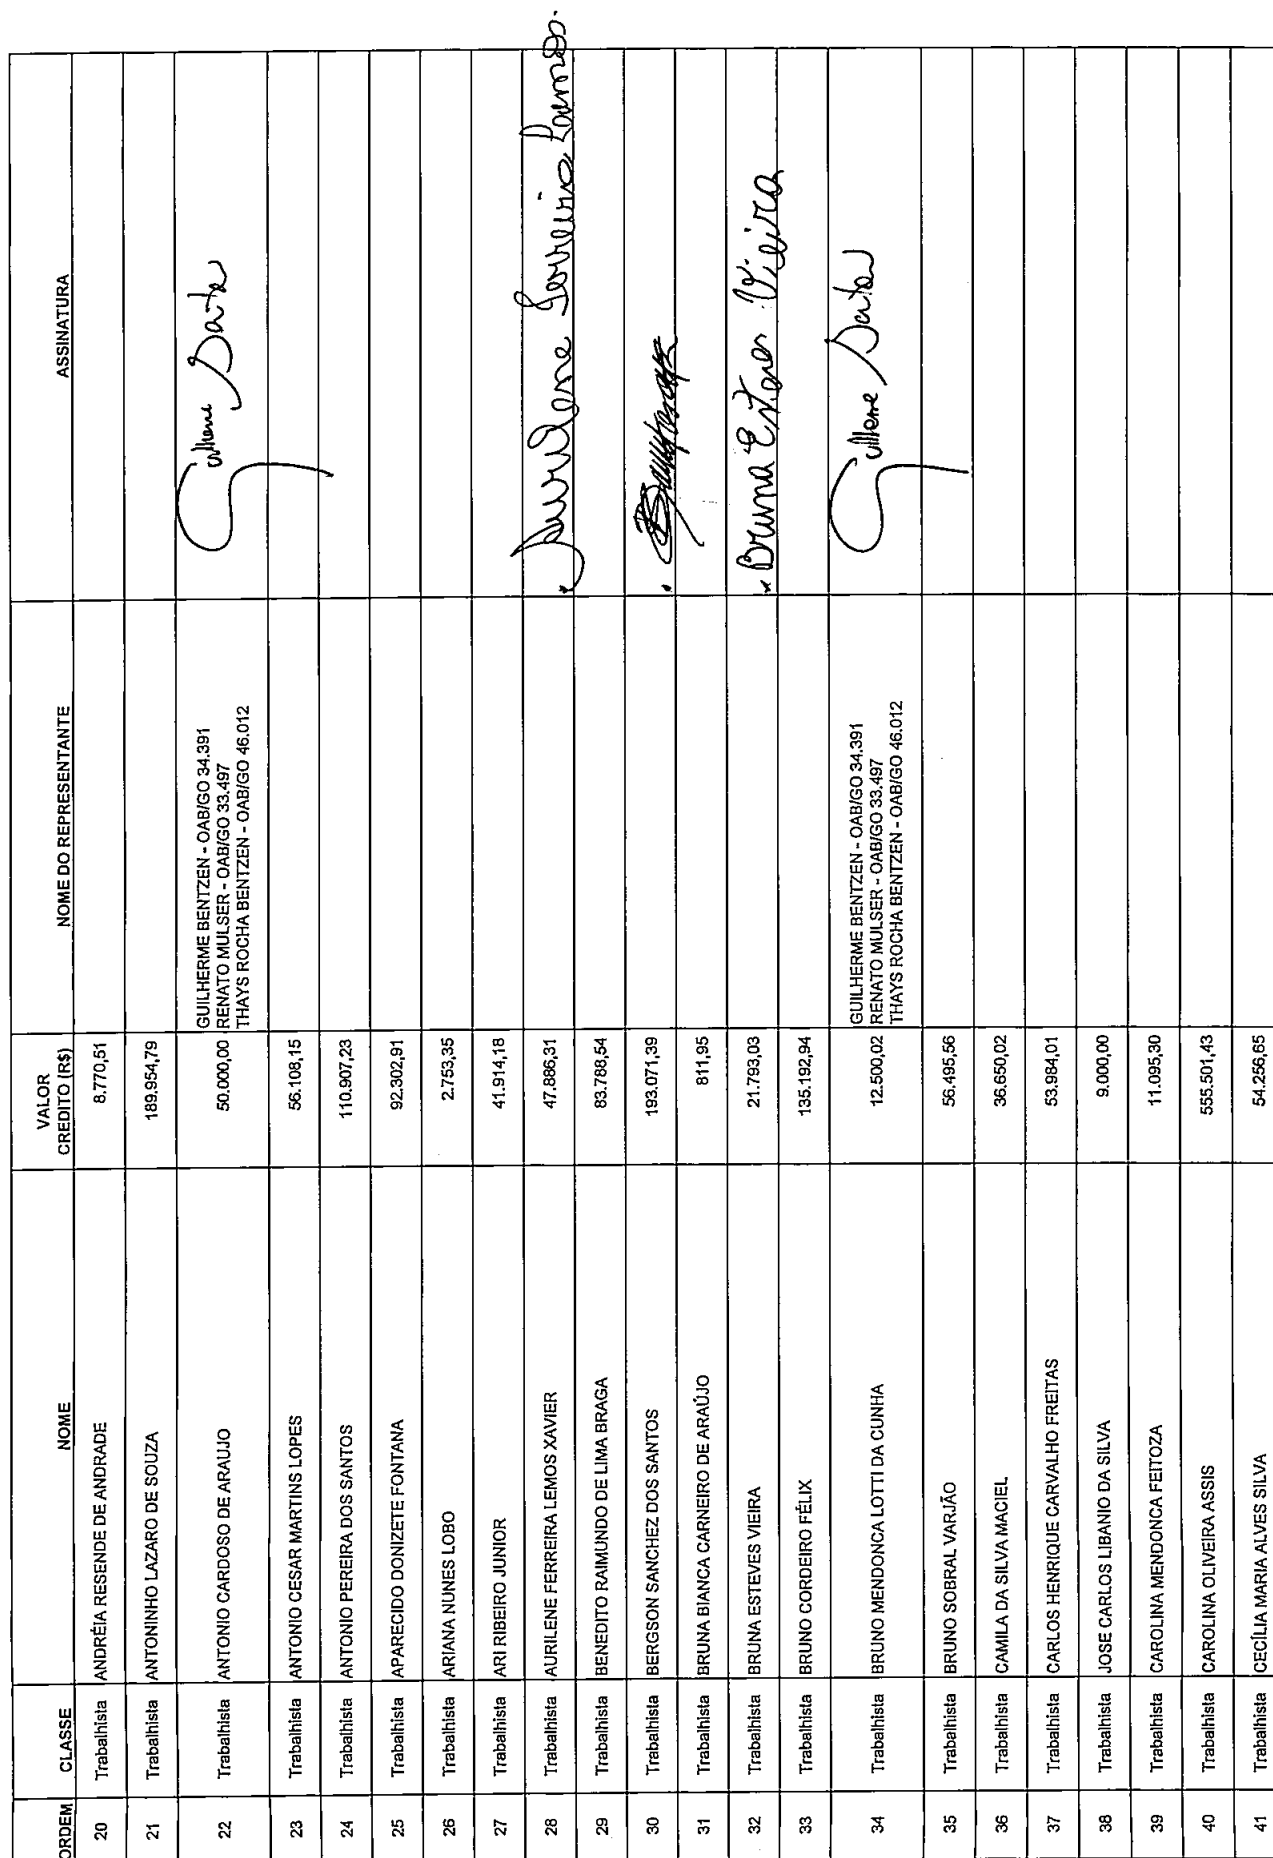 ORDEM CLASSE NOME VALOR CREDITO (R$) NOME DO REPRESENTANTE ASSINATURA
20 Trabalhista ANDRÉIA RESENDE DE ANDRADE 8.770,51
21 Trabalhista ANTONINHO LAZARO DE SOUZA 189.954,79
22 Trabalhista ANTONIO CARDOSO DE ARAUJO 50.000,00 GUILHERME BENTZEN - OAB/GO 34.391
RENATO MULSER - OAB/GO 33.497
THAYS ROCHA BENTZEN - OAB/GO 46.012
23 Trabalhista ANTONIO CESAR MARTINS LOPES 56.108,15
24 Trabalhista ANTONIO PEREIRA DOS SANTOS 110.907,23
25 Trabalhista APARECIDO DONIZETE FONTANA 92.302,91
26 Trabalhista ARIANA NUNES LOBO 2.753,35
27 Trabalhista ARI RIBEIRO JUNIOR 41.914,18
28 Trabalhista AURILENE FERREIRA LEMOS XAVIER 47.886,31
29 Trabalhista BENEDITO RAIMUNDO DE LIMA BRAGA 83.788,54
30 Trabalhista BERGSON SANCHEZ DOS SANTOS 193.071,39
31 Trabalhista BRUNA BIANCA CARNEIRO DE ARAÚJO 811,95
32 Trabalhista BRUNA ESTEVES VIEIRA 21.793,03 Bruna Esteves Vieira
33 Trabalhista BRUNO CORDEIRO FÉLIX 135.192,94
34 Trabalhista BRUNO MENDONCA LOTTI DA CUNHA 12.500,02 GUILHERME BENTZEN - OAB/GO 34.391
RENATO MULSER - OAB/GO 33.497
THAYS ROCHA BENTZEN - OAB/GO 46.012
35 Trabalhista BRUNO SOBRAL VARJÃO 56.495,56
36 Trabalhista CAMILA DA SILVA MACIEL 36.650,02
37 Trabalhista CARLOS HENRIQUE CARVALHO FREITAS 53.984,01
38 Trabalhista JOSE CARLOS LIBANIO DA SILVA 9.000,00
39 Trabalhista CAROLINA MENDONCA FEITOZA 11.095,30
40 Trabalhista CAROLINA OLIVEIRA ASSIS 555.501,43
41 Trabalhista CECÍLIA MARIA ALVES SILVA 54.256,65